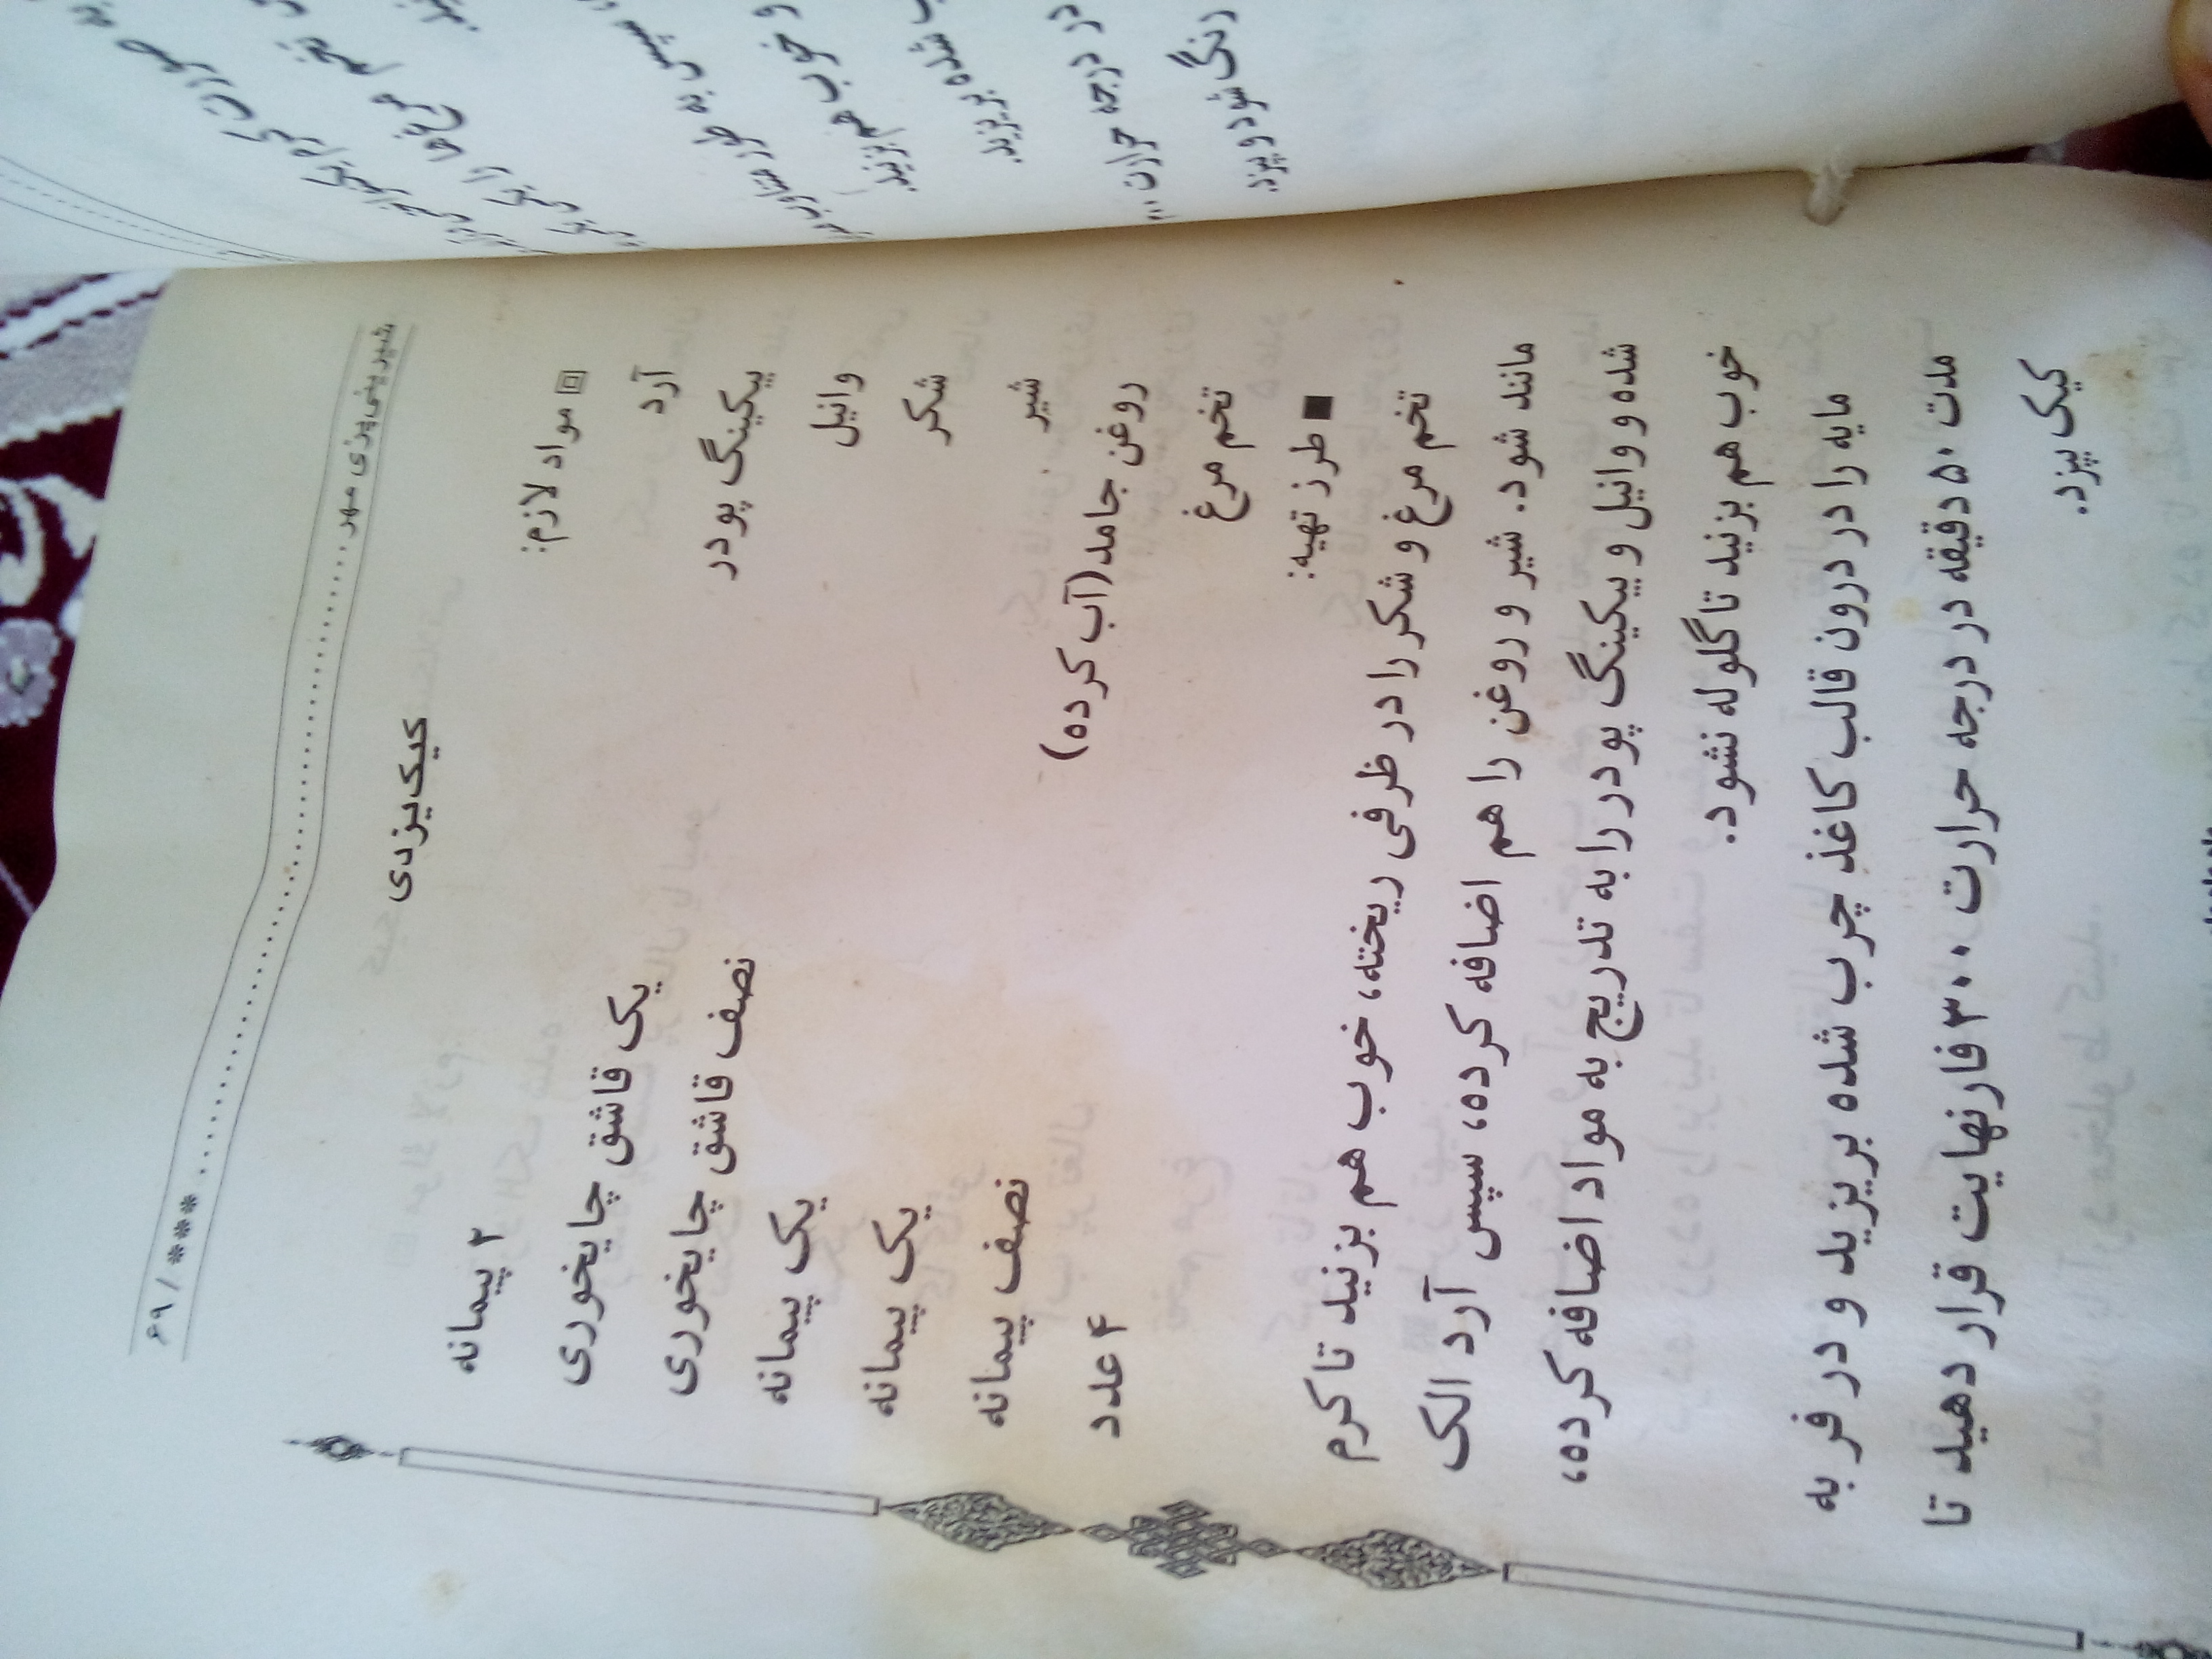 شیرینی‌پزی مهر ........ *** / ۶۹
کیک یزدی
مواد لازم:
آرد ۲ پیمانه
بیکینگ پودر یک قاشق چایخوری
وانیل نصف قاشق چایخوری
شکر یک پیمانه
شیر یک پیمانه
روغن جامد (آب کرده) نصف پیمانه
تخم مرغ ۴ عدد
■ طرز تهیه:
تخم مرغ و شکر را در ظرفی ریخته، خوب هم بزنید تا کرم
مانند شود. شیر و روغن را هم اضافه کرده، سپس آرد الک
شده و وانیل و بیکینگ پودر را به تدریج به مواد اضافه کرده،
خوب هم بزنید تا گلوله نشود.
مایه را در درون قالب کاغذ چرب شده بریزید و در فر به
مدت ۵۰ دقیقه در درجه حرارت ۳۰۰ فارنهایت قرار دهید تا
کیک بپزد.
سپس به طور
و خوب هم بزنید.
شده بریزید.
در درجه حرارت
رنگ شود و بپزد.